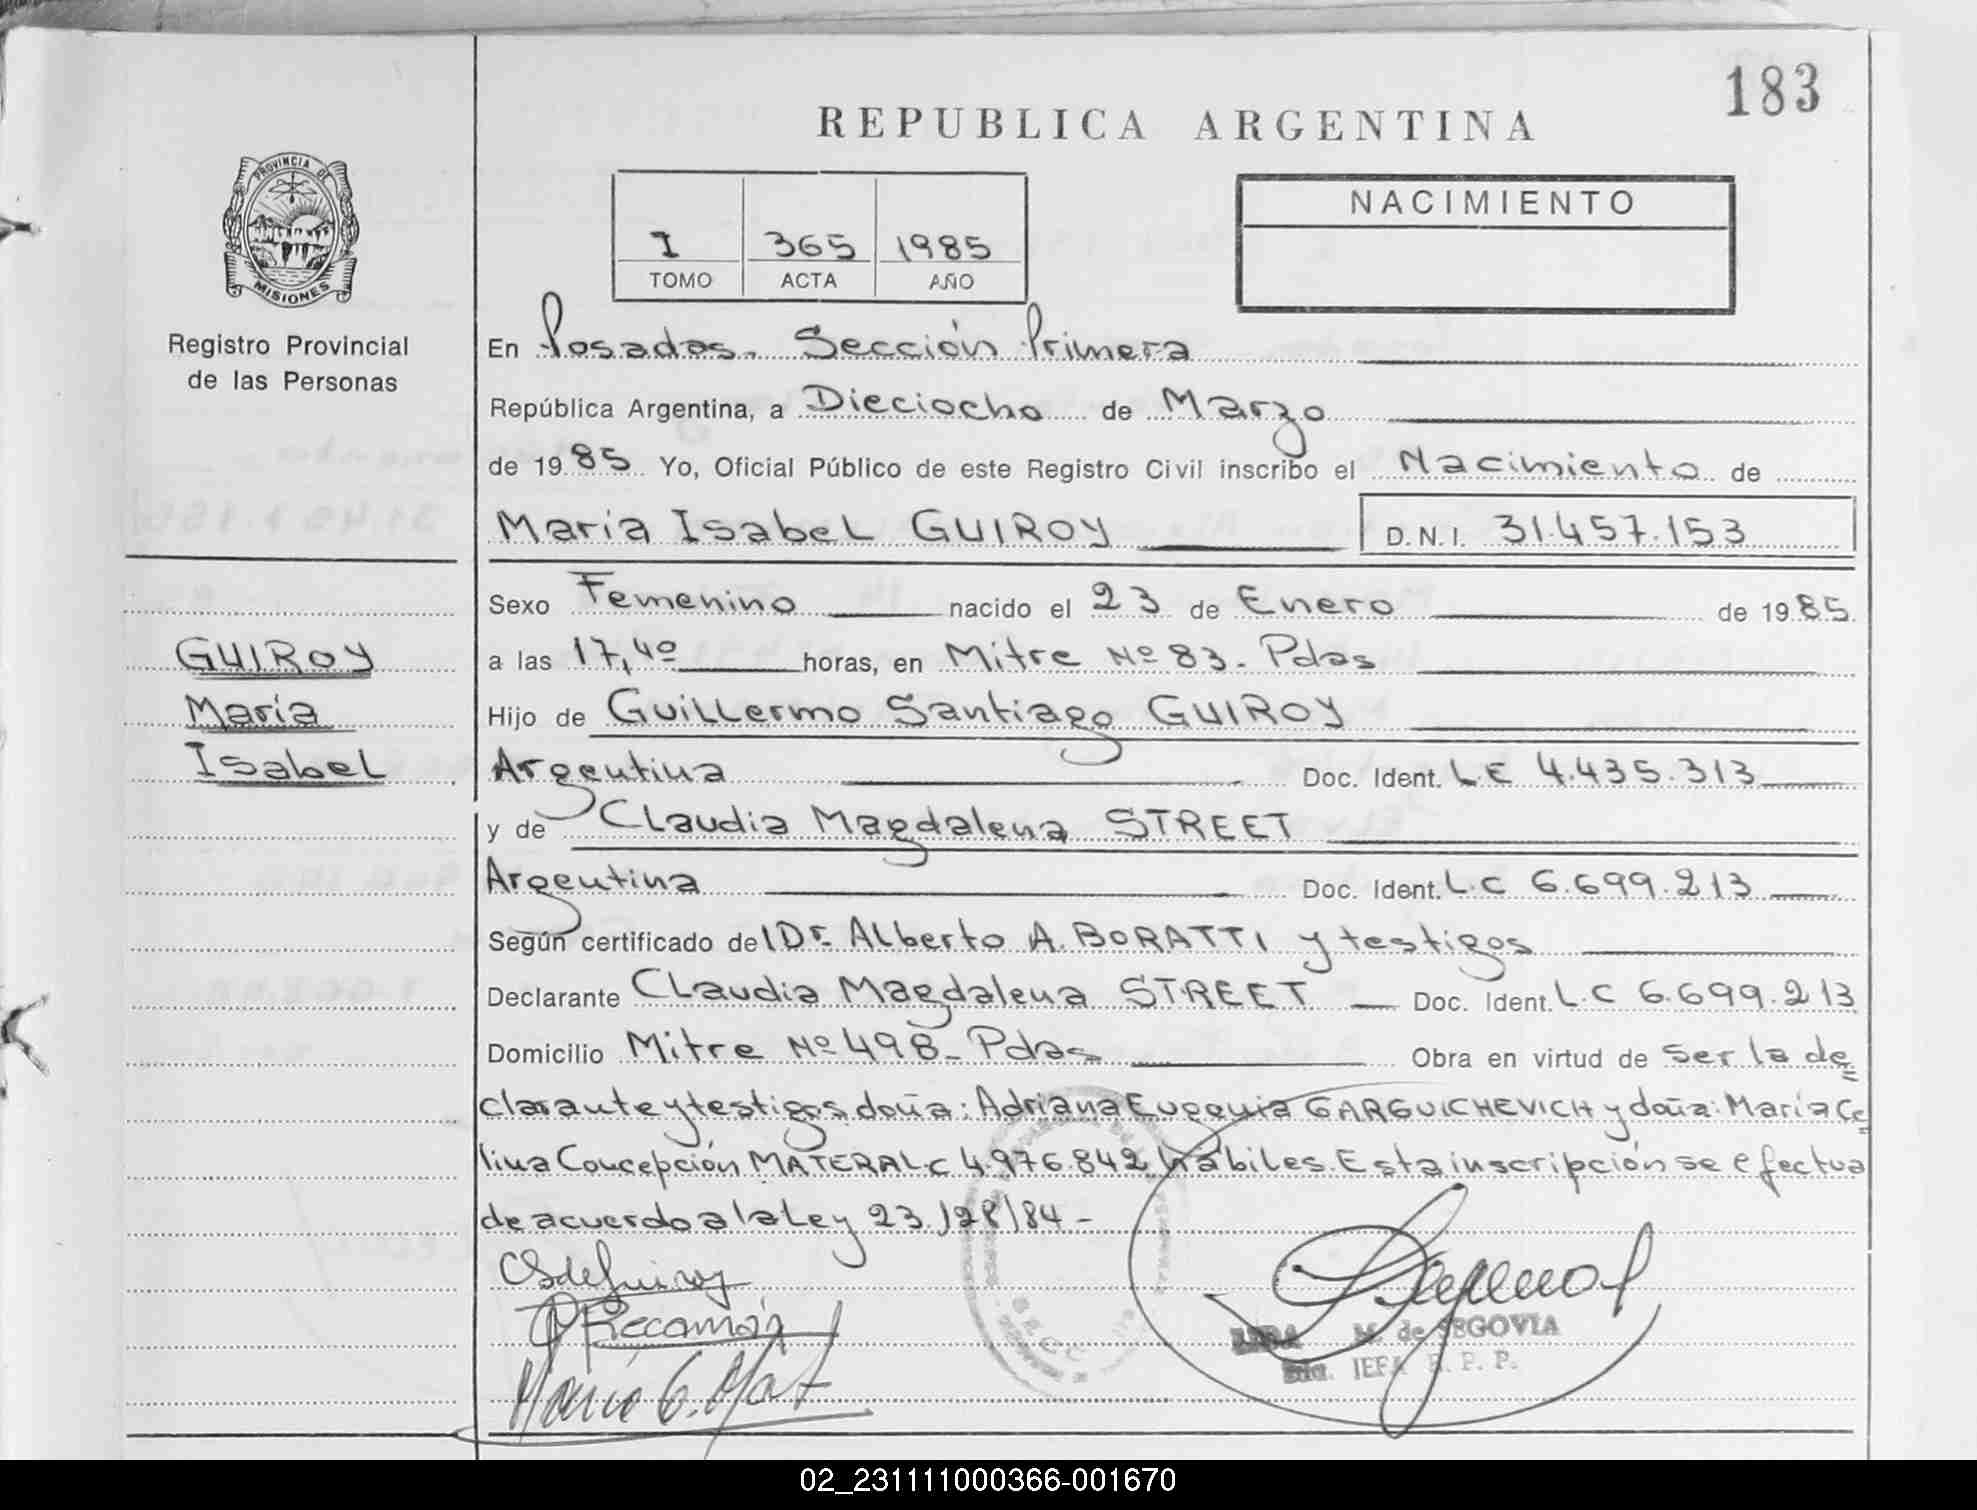 183
REPUBLICA ARGENTINA
PROVINCIA DE
MISIONES
Registro Provincial
de las Personas
I 365 1985
TOMO ACTA AÑO
NACIMIENTO
En Posadas. Sección Primera
República Argentina, a Dieciocho de Marzo
de 1985 Yo, Oficial Público de este Registro Civil inscribo el Nacimiento de
María Isabel GUIROY D.N.I. 31.457.153
Sexo Femenino nacido el 23 de Enero de 1985
GUIROY
María
Isabel
a las 17,40 horas, en Mitre Nº 83. Pdas
Hijo de Guillermo Santiago GUIROY
Argentina Doc. Ident. L.E 4.435.313
y de Claudia Magdalena STREET
Argentina Doc. Ident. L.C 6.699.213
Según certificado del Dr. Alberto A. BORATTI y testigos
Declarante Claudia Magdalena STREET Doc. Ident. L.C 6.699.213
Domicilio Mitre Nº 498_ Pdas Obra en virtud de Ser la de
clarante y testigos doña: Adriana Eugenia GARGUICHEVICH y doña: María Ce
lina Concepción MATERA L.C 4.976.842 hábiles. Esta inscripción se efectua
de acuerdo a la Ley 23.128/84 -
CSdeGuiroy
M. de SEGOVIA
JEFA R. P. P.
02_231111000366-001670